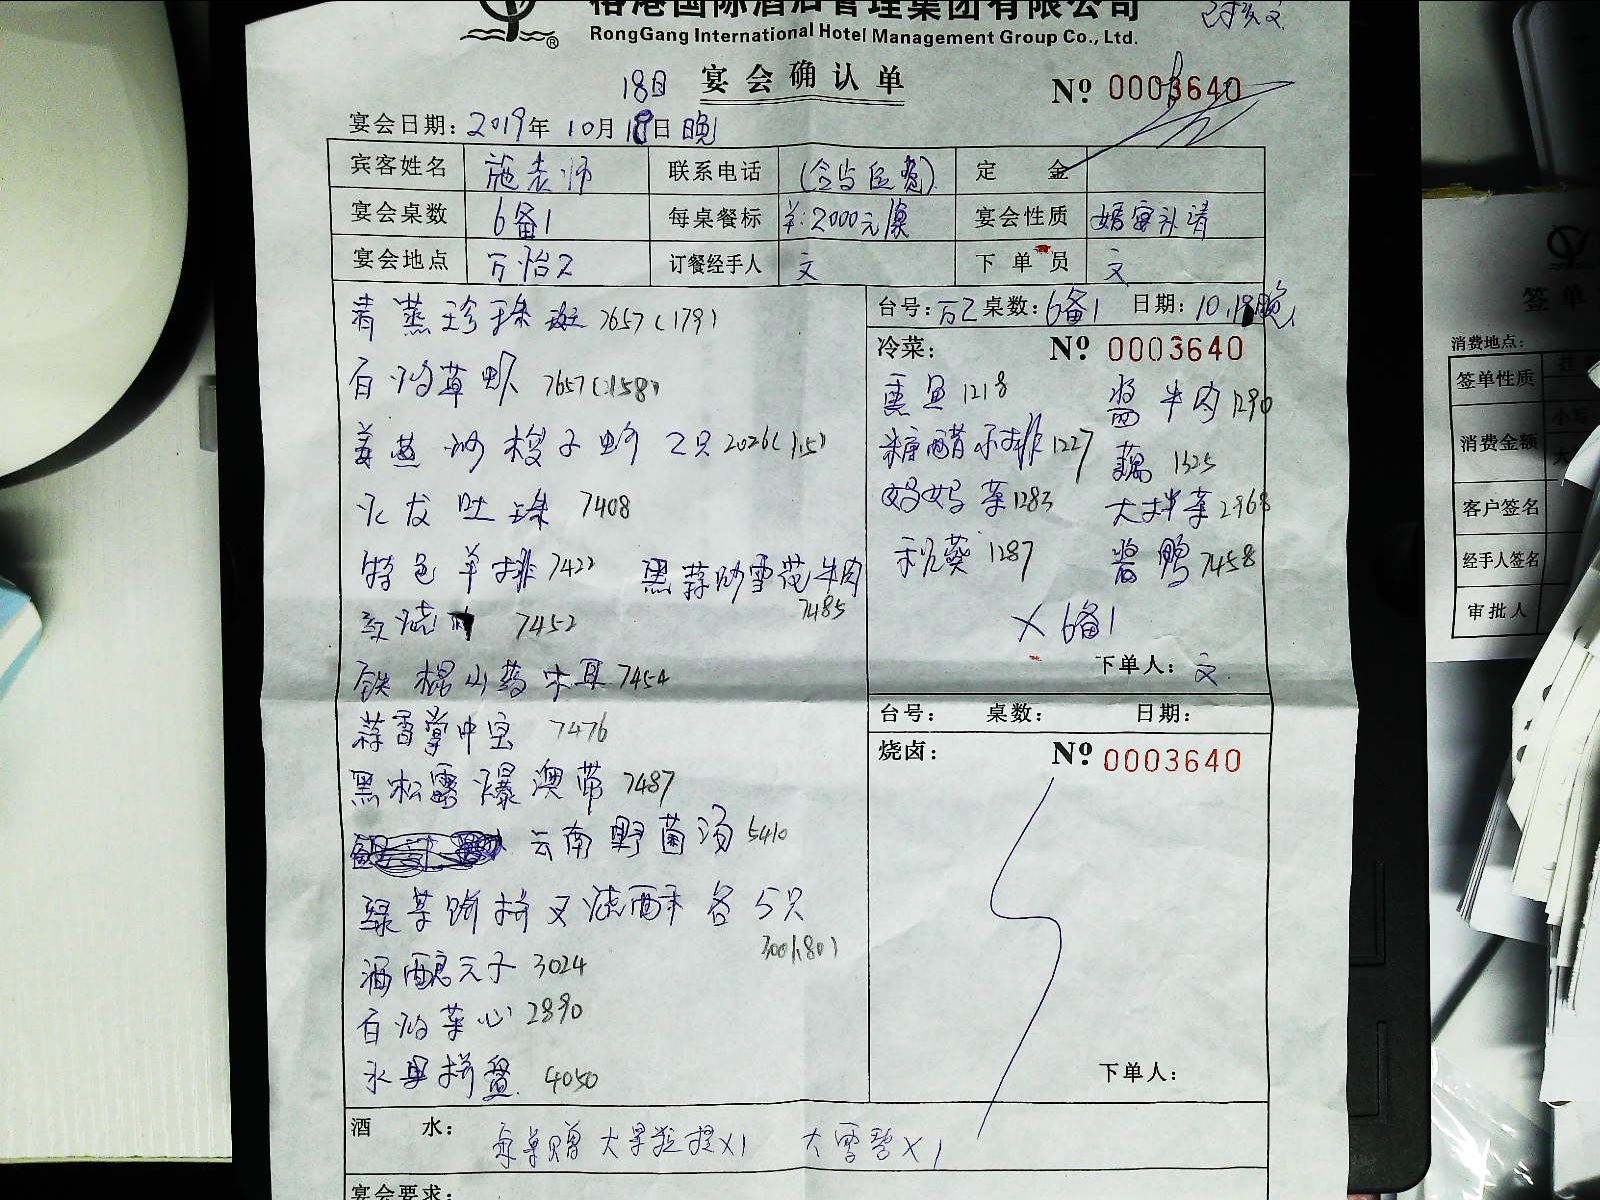 榕港国际酒店管理集团有限公司
RongGang International Hotel Management Group Co., Ltd.
18日 宴会确认单 Nº 0003640
宴会日期：2019年10月18日晚
宾客姓名 施老师 联系电话 (含与包费) 定金
宴会桌数 6备1 每桌餐标 ¥:2000元/桌 宴会性质 婚宴补请
宴会地点 万怡乙 订餐经手人 文 下单员 文
台号：万乙 桌数：6备1 日期：10.18晚
清蒸珍珠斑 7657(179)
冷菜： Nº 0003640
白灼草虾 7657(158)
熏鱼 1218 酱牛肉 1290
姜葱炒梭子蟹 2只 2026(115)
糖醋小排 1227 藕 1325
火龙吐珠 7408
妈妈菜 1283 大拌菜 2968
特色羊排 7422 黑蒜炒雪花牛肉 7485
秋葵 1287 酱鸭 7458
红烧 7452
X 6备1
铁棍山药木耳 7454
下单人：文
蒜香掌中宝 7476
台号： 桌数： 日期：
黑松露爆澳带 7487
烧卤： Nº 0003640
云南野菌汤 5410
绿茶饼拼叉烧酥 各5只 3001(80)
酒酿元子 3024
白灼菜心 2890
水果拼盘 4050
下单人：
酒水： 每桌赠大果粒橙X1 大雪碧X1
宴会要求：
签单
消费地点：
签单性质
消费金额 小写
大
客户签名
经手人签名
审批人